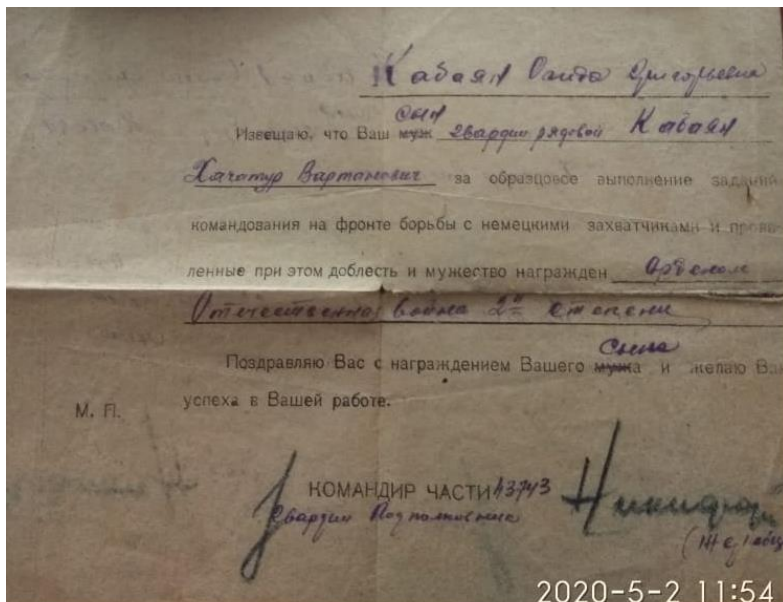 Кабаян Санта Григорьевна
сын
Извещаю, что Ваш муж Гвардии рядовой Кабаян
Хачатур Вартанович за образцовое выполнение заданий
командования на фронте борьбы с немецкими захватчиками и прояв-
ленные при этом доблесть и мужество награжден Орденом
Отечественна война 2й степени
сына
Поздравляю Вас с награждением Вашего мужа и желаю Вам
успеха в Вашей работе.
М. П.
КОМАНДИР ЧАСТИ 43743
Гвардии Подполковник
2020-5-2 11:54